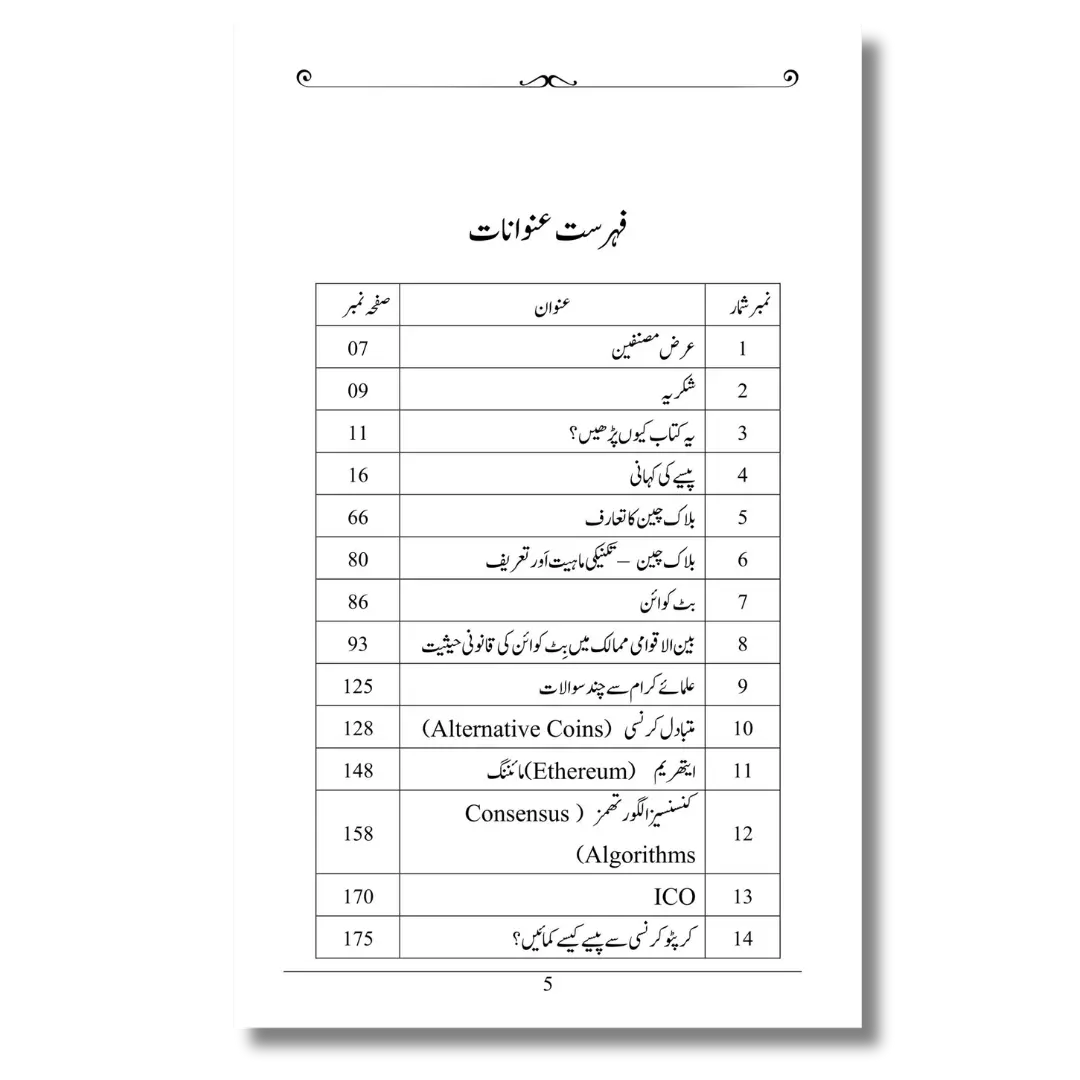 فہرست عنوانات
نمبر شمار عنوان صفحہ نمبر
1 عرض مصنفین 07
2 شکریہ 09
3 یہ کتاب کیوں پڑھیں؟ 11
4 پیسے کی کہانی 16
5 بلاک چین کا تعارف 66
6 بلاک چین – تکنیکی ماہیت اَور تعریف 80
7 بٹ کوائن 86
8 بین الاقوامی ممالک میں بِٹ کوائن کی قانونی حیثیت 93
9 علمائے کرام سے چند سوالات 125
10 متبادل کرنسی (Alternative Coins) 128
11 ایتھریم (Ethereum) مائننگ 148
12 کنسنسیز الگورتھمز (Consensus 158
Algorithms)
13 ICO 170
14 کرپٹو کرنسی سے پیسے کیسے کمائیں؟ 175
5